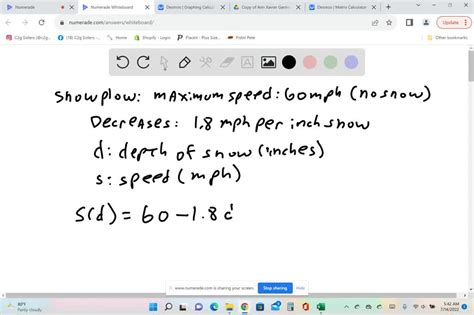 Numerade
Numerade Whiteboard
Desmos | Graphing Calcul
Copy of Ann Xavier Gentr
Desmos | Matrix Calculator
numerade.com/answers/whiteboard/
Update
Other bookmarks
A
Snowplow: maximum speed: 60 mph (no snow)
Decreases: 1.8 mph per inch snow
d: depth of snow (inches)
s: speed (mph)
S(d) = 60 - 1.8 d
www.numerade.com is sharing your screen.
Stop sharing
Hide
80°F
Partly cloudy
5:42 AM
7/14/2022